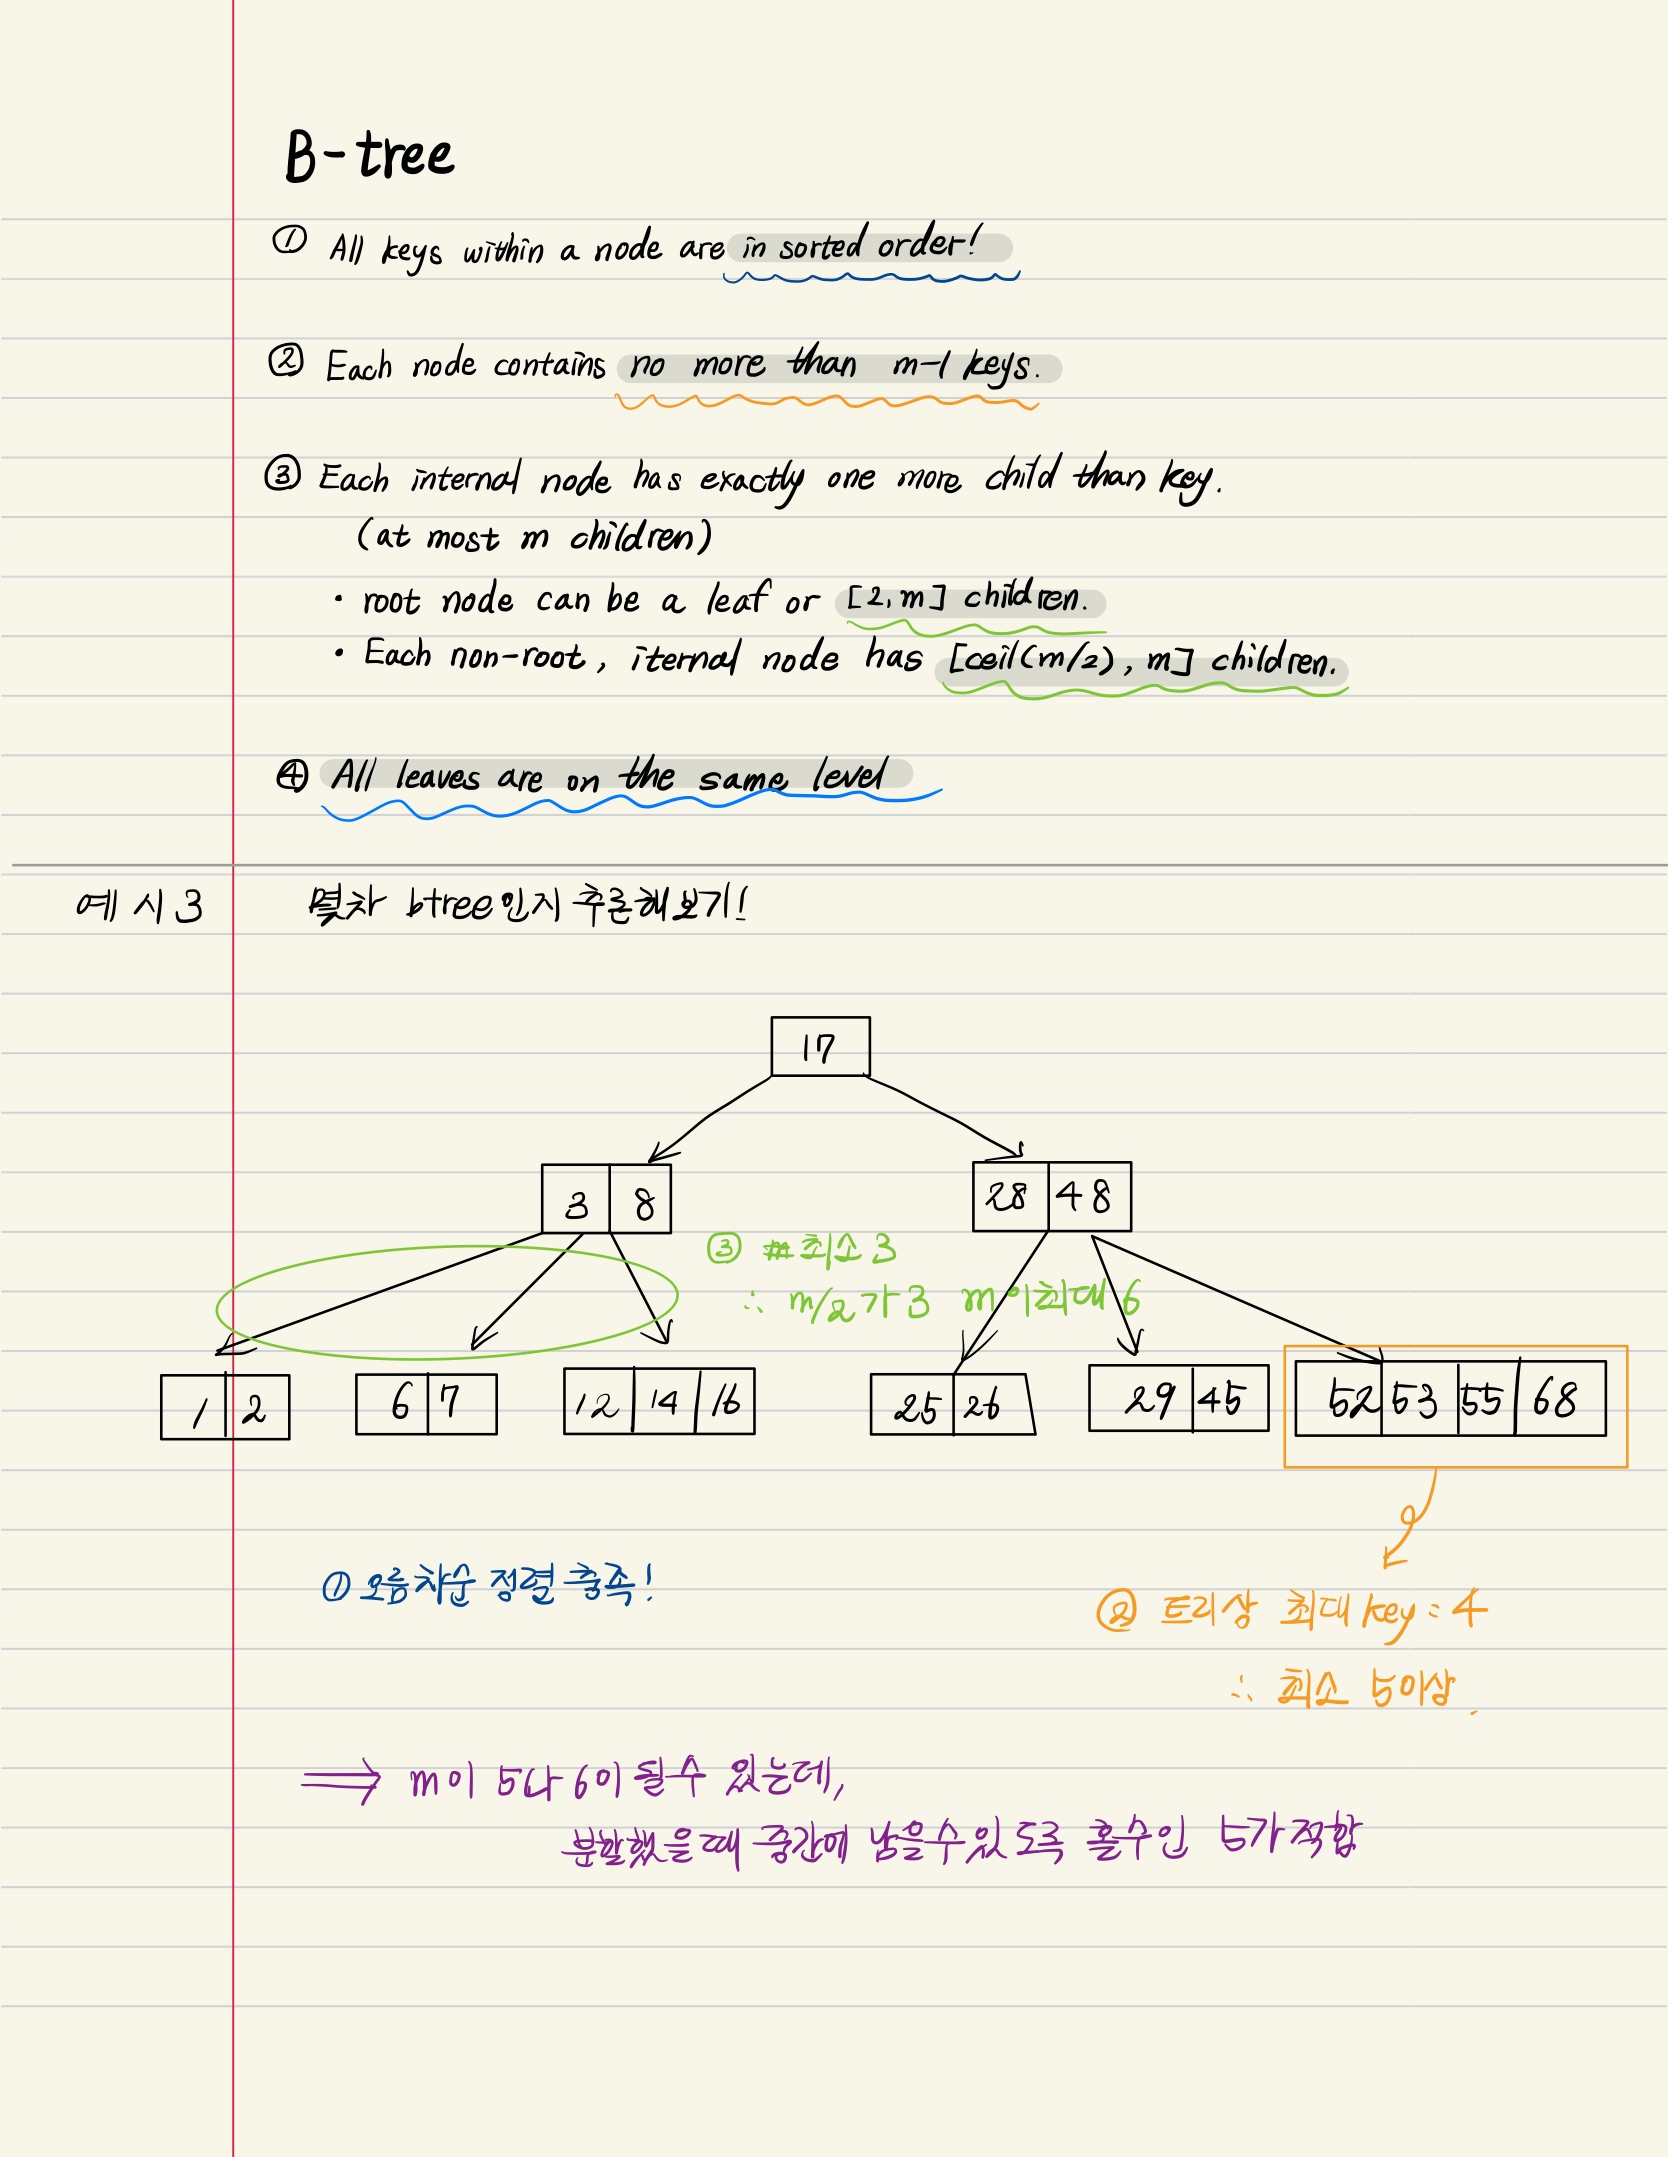 B-tree
① All keys within a node are in sorted order!
② Each node contains no more than m-1 keys.
③ Each internal node has exactly one more child than key.
(at most m children)
• root node can be a leaf or [2, m] children.
• Each non-root, iternal node has [ceil(m/2), m] children.
④ All leaves are on the same level
예시3 몇차 btree인지 추론해보기!
17
3 8 28 48
③ 최소 3
∴ m/2가 3 m이 최대 6
1 2 6 7 12 14 16 25 26 29 45 52 53 55 68
① 오름차순 정렬 충족!
② 트리상 최대 key = 4
∴ 최소 5이상.
⇒ m이 5나 6이 될 수 있는데,
분할했을때 중간에 남을수있도록 홀수인 5가 적합